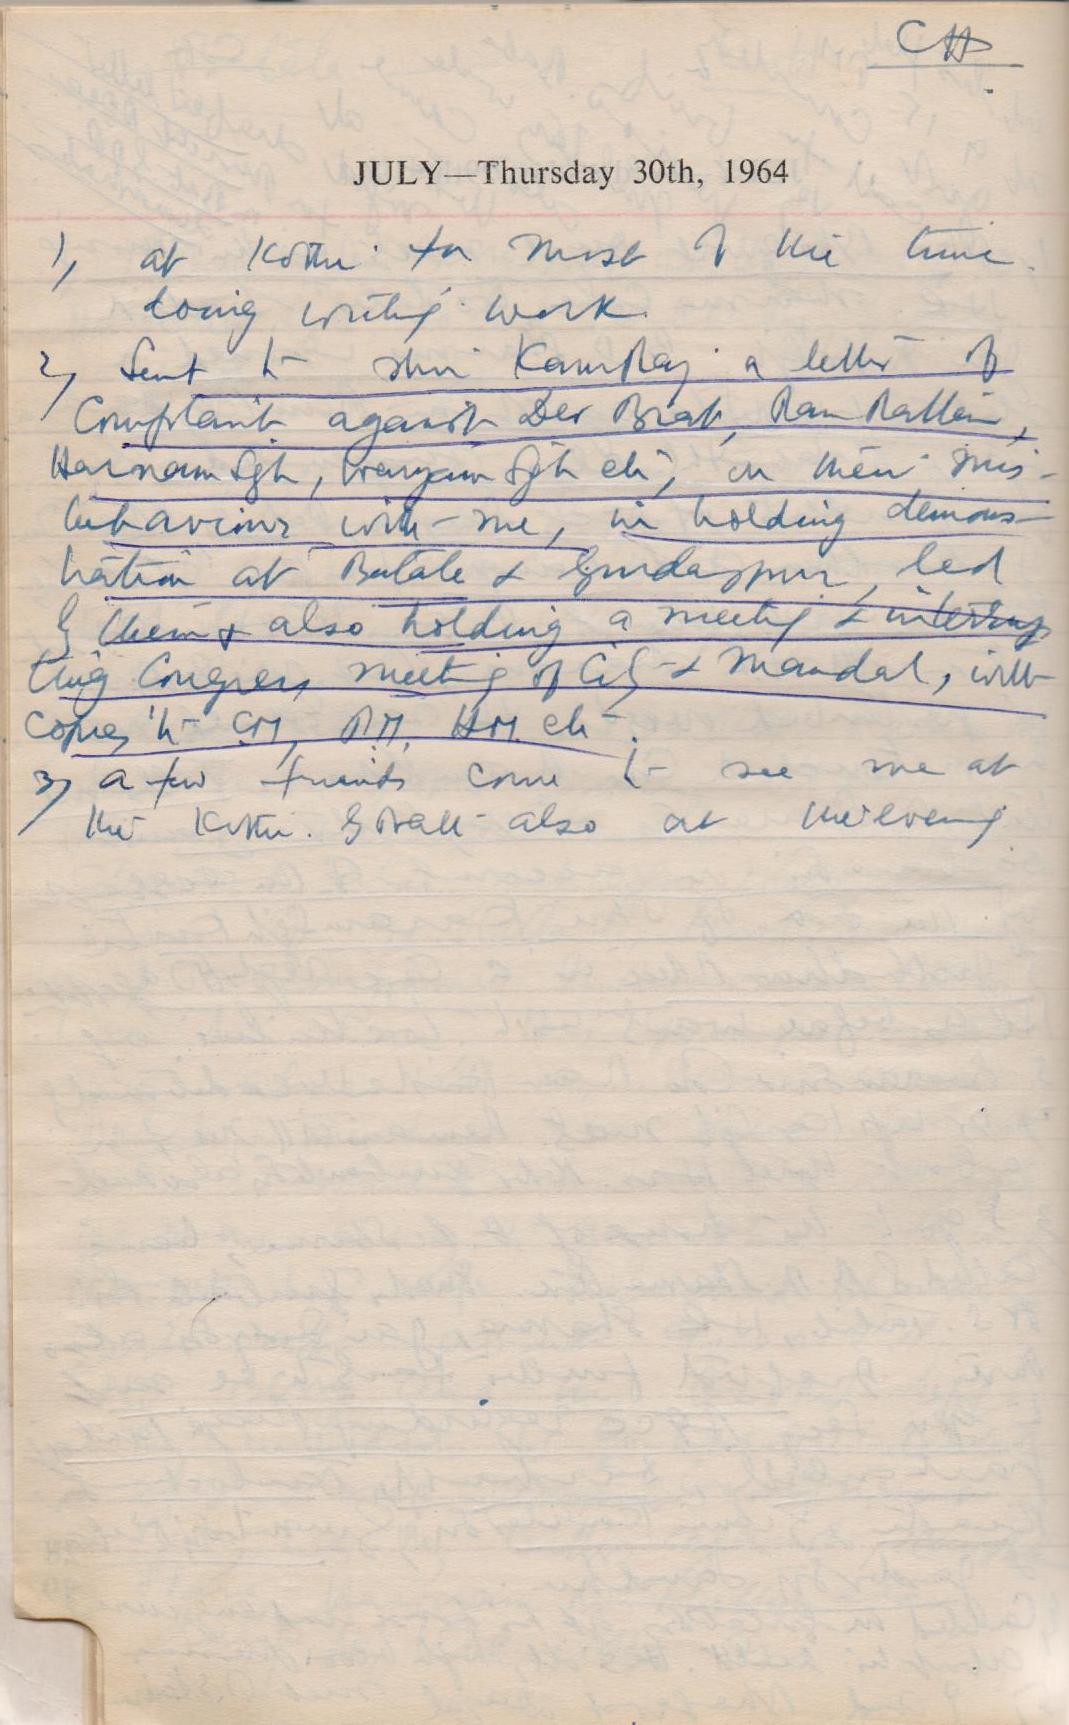 CH
JULY—Thursday 30th, 1964
1) at Kothi for most of the time
doing writing work.
2) Sent to Shri KamRaj a letter of
Complaint against Dev Brat, Ram Rattan,
Harnam Sgh, Waryam Sgh etc, on their mis-
behaviour with me, in holding demons-
tration at Batala & Gurdaspur, led
by them & also holding a meeting & interrup
ting Congress meeting of City & Mandal, with
copies to CM, PM, HM etc.
3) a few friends come to see me at
the Kothi. also at the evening